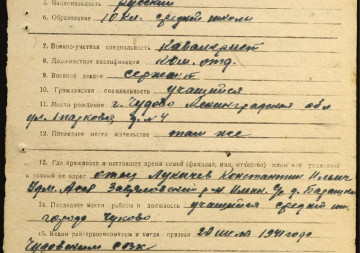 5. Национальность русский
6. Образование 10 кл. средней школы
7. Военно-учетная специальность кавалерист
8. Должностная квалификация ком. отд.
9. Военное звание сержант
10. Гражданская специальность учащийся
11. Место рождения г. Чудово Ленинградская обл
ул. Парковая д. № 4
12. Последнее место жительства там же
13. Где проживает в настоящее время семья (фамилия, имя, отчество) жены или родителей
и точный их адрес отец Лукичев Константин Ильич
Удм. Асср Завьяловский р-н
14. Последнее место работы и должность учащийся средней
города Чудово
15. Каким райгорвоенкоматом и когда призван 22 июля 1941 года
Чудовским